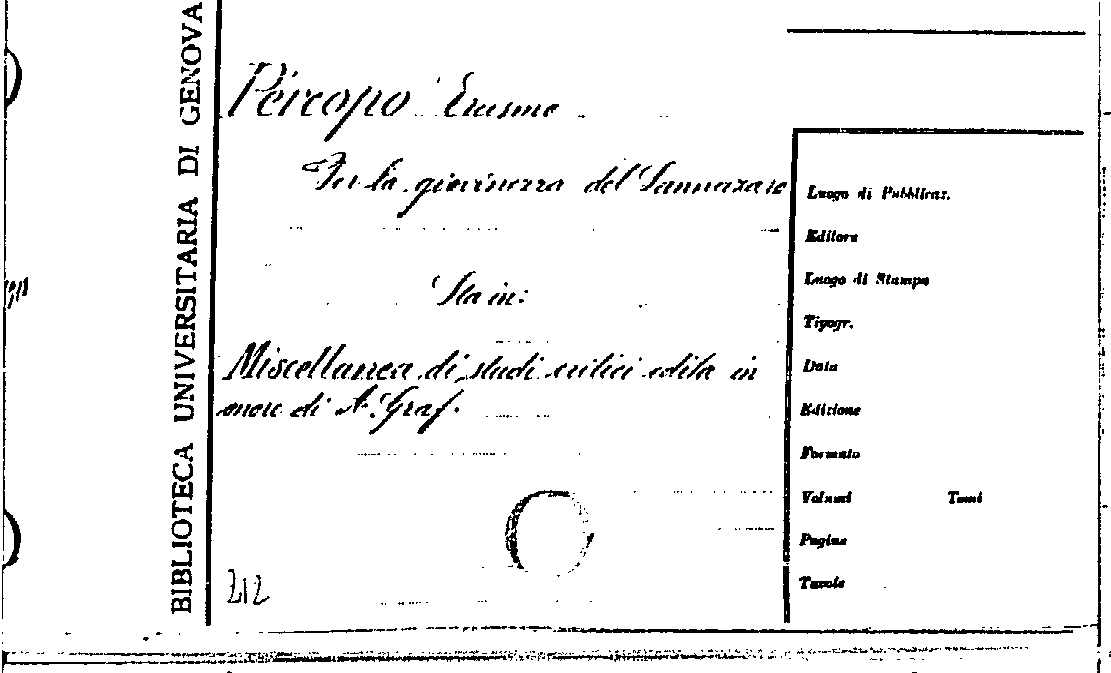 BIBLIOTECA UNIVERSITARIA DI GENOVA
Pèrcopo Erasmo
Per la giovinezza del Sannazaro
Sta in:
Miscellanea di studi critici edita in
onore di A. Graf.
212
Luogo di Pubblicaz.
Editore
Luogo di Stampa
Tipogr.
Data
Edizione
Formato
Volumi Tomi
Pagine
Tavole